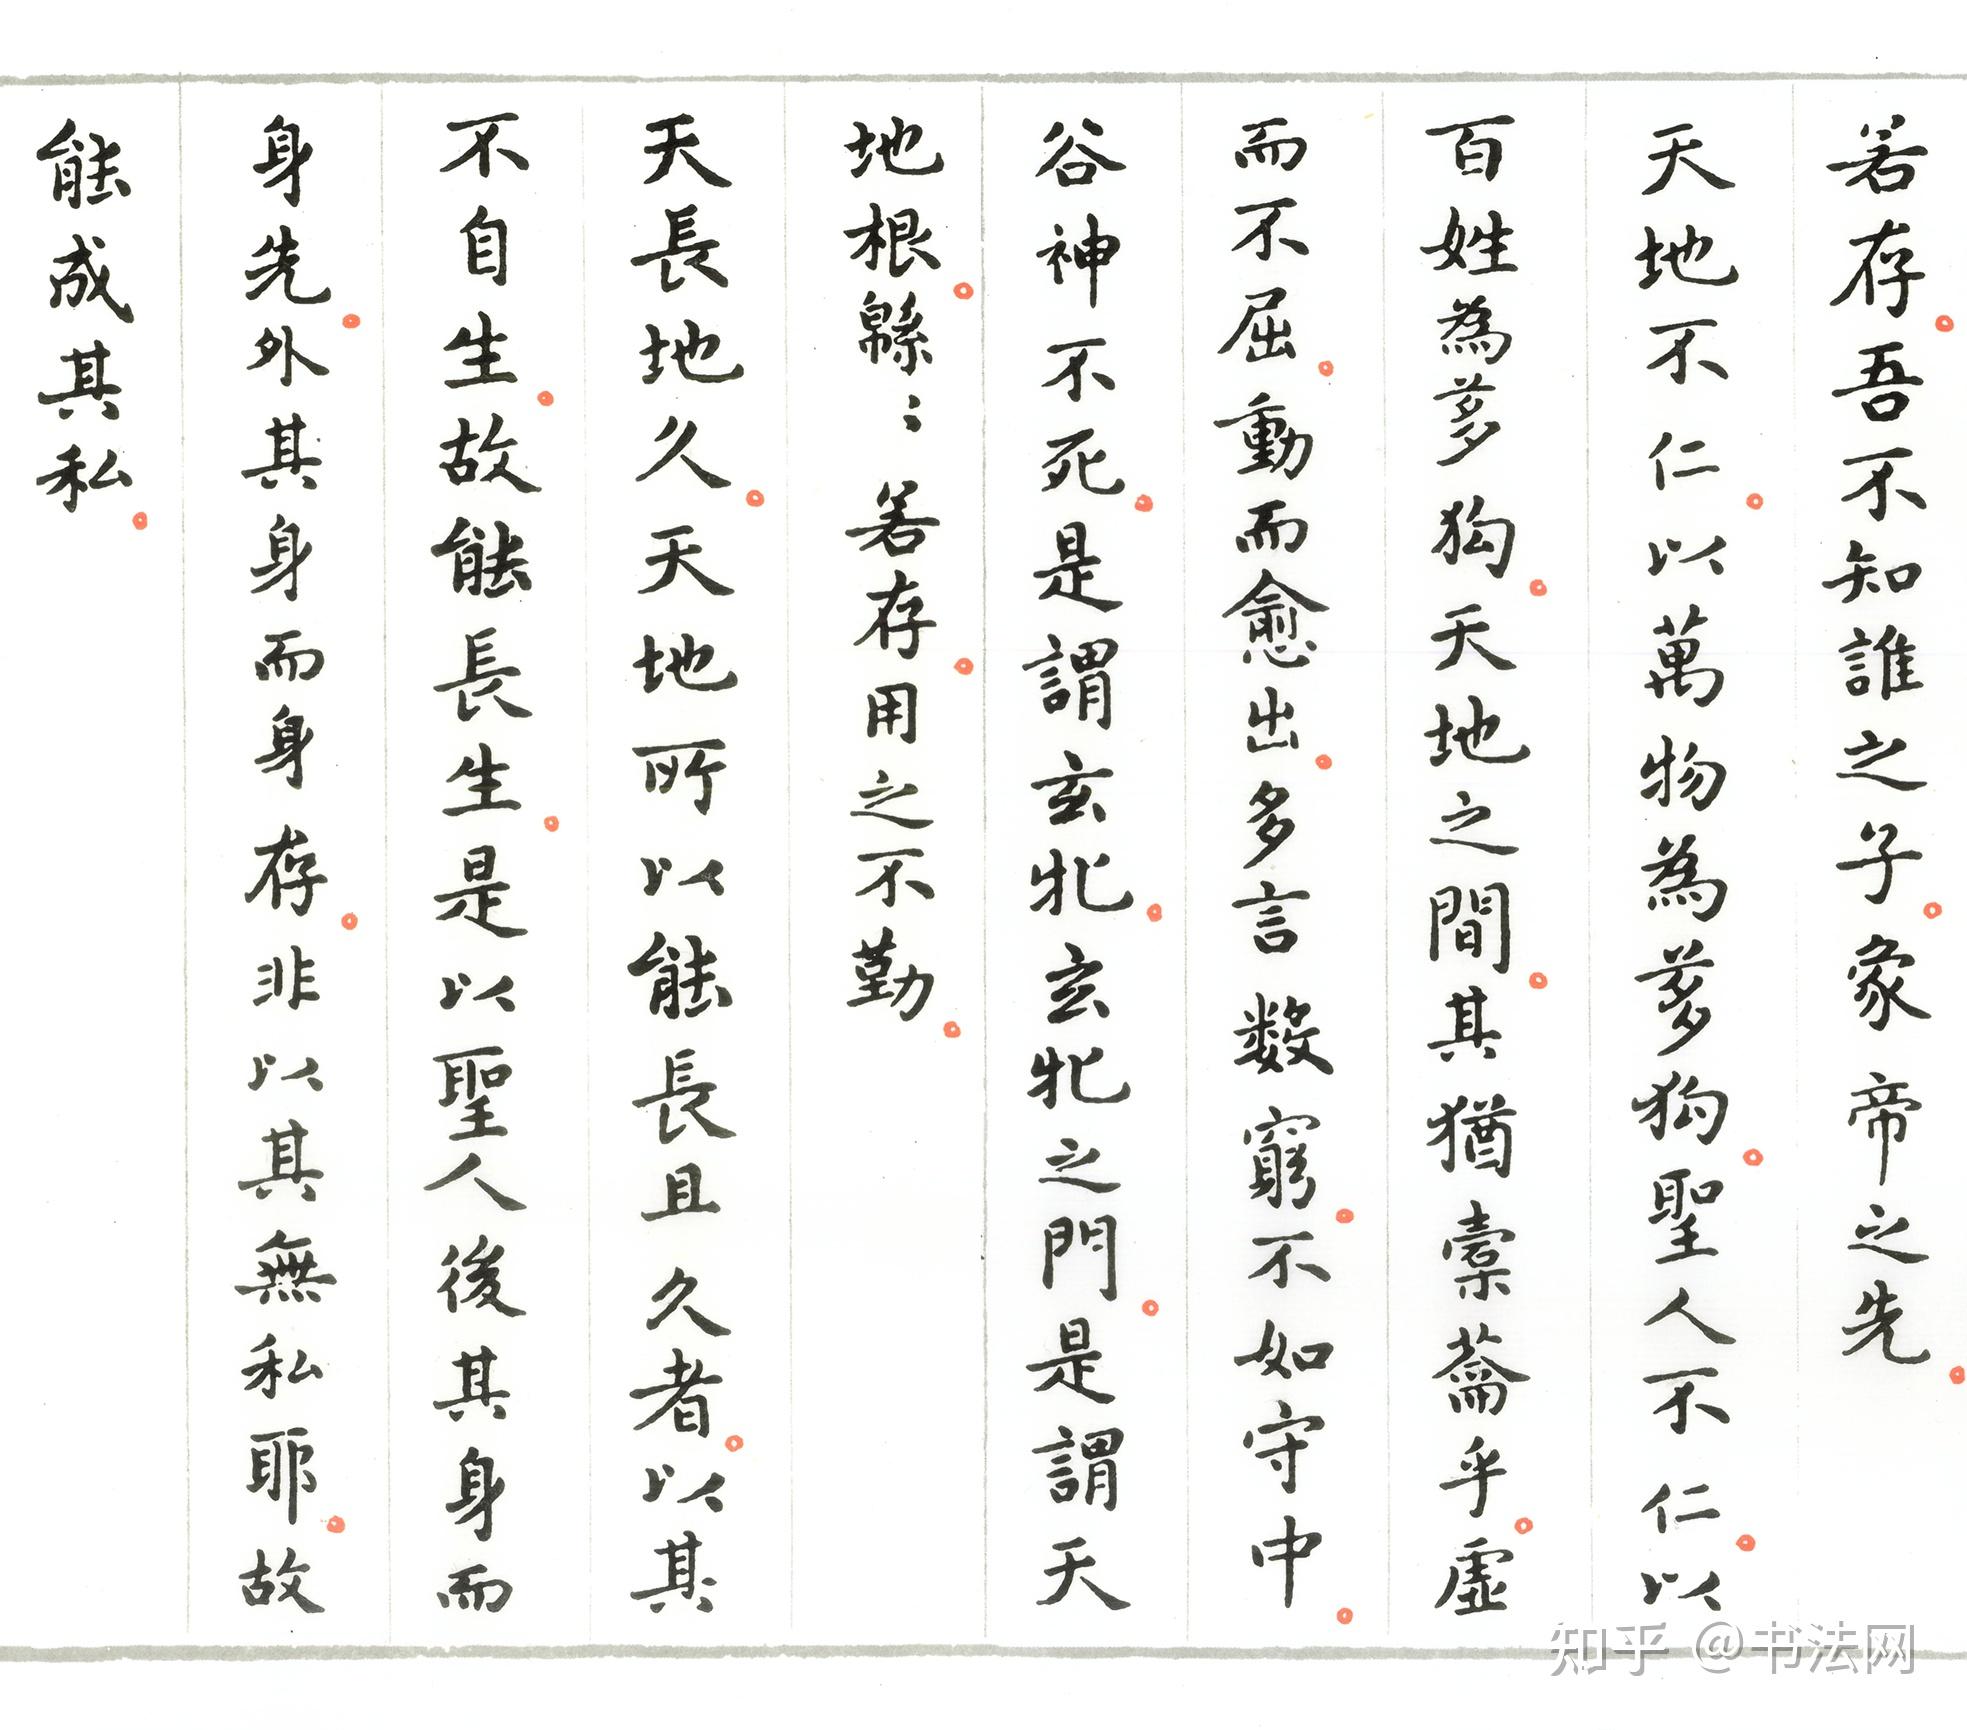 若存。吾不知誰之子。象帝之先。
天地不仁。以萬物為芻狗。聖人不仁。以
百姓為芻狗。天地之間。其猶橐籥乎。虛
而不屈。動而愈出。多言數窮。不如守中。
谷神不死。是謂玄牝。玄牝之門。是謂天
地根。緜〻若存。用之不勤。
天長地久。天地所以能長且久者。以其
不自生。故能長生。是以聖人後其身而
身先。外其身而身存。非以其無私耶。故
能成其私。
知乎 @书法网